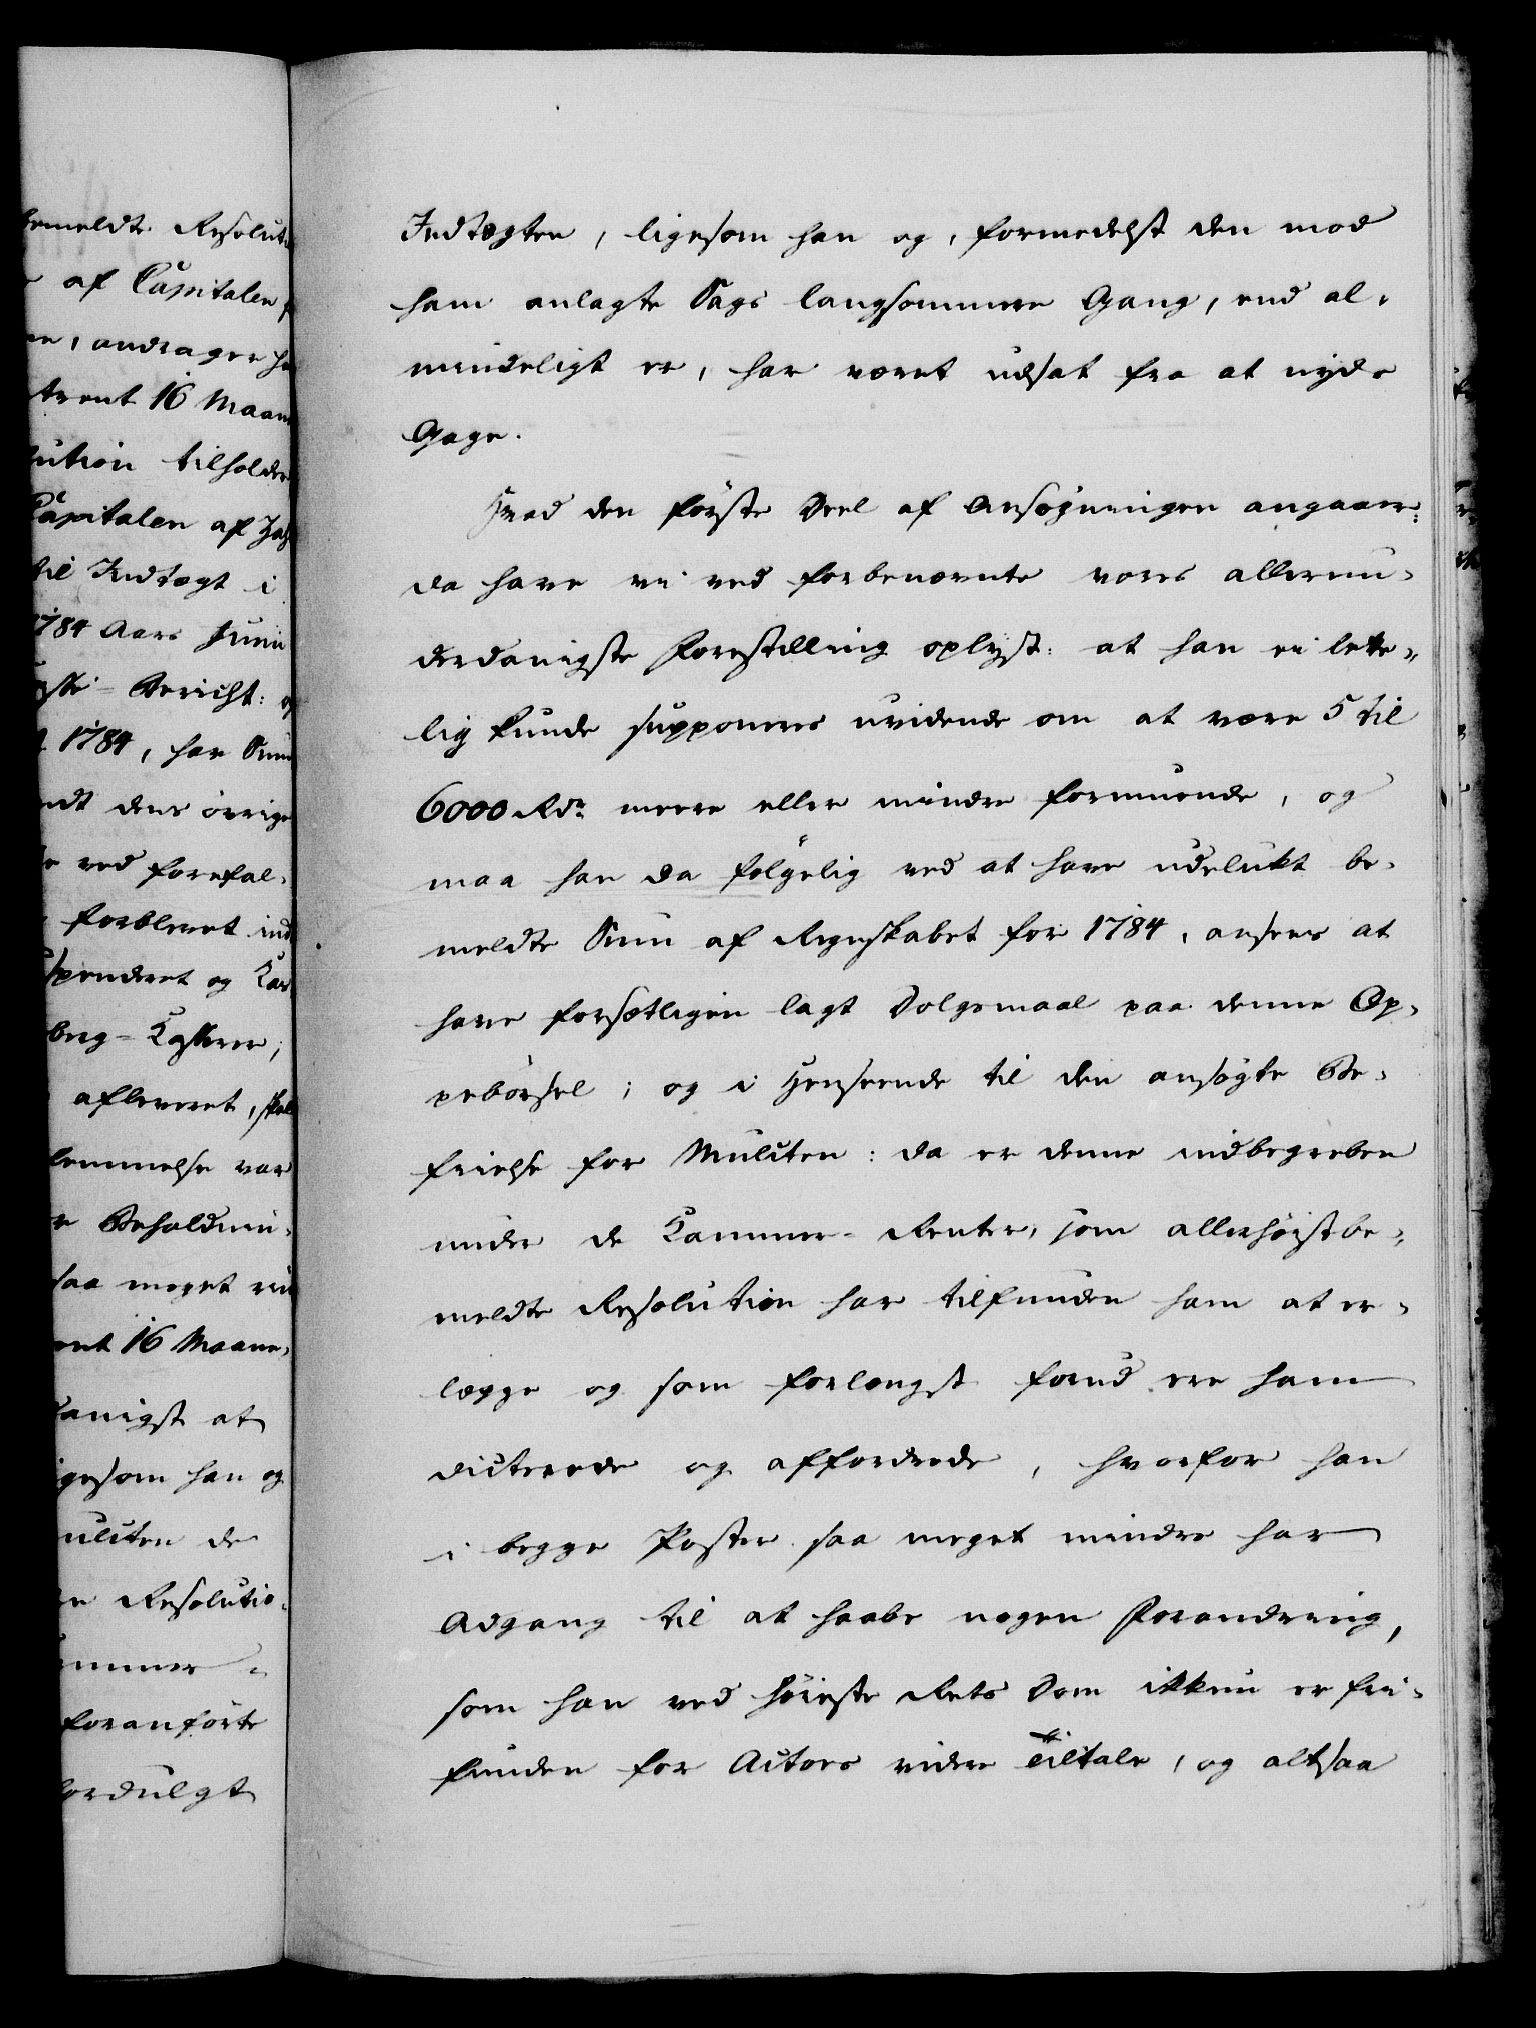 emeldte Resoluti
af Capitalen
andrager
trent 16 Maan
ution tilholder
Capitalen af
til Indtægt i
1784 Aars Junii
Bericht:
1784, har
dens øvrige
ved forefal-
forblevet ind
spenderet og
berg-Casserer,
afleveret,
lemmelse var
Beholdnin-
saa meget
ent 16 Maane-
danigst at
igesom han og
ulcten de
Resolutio-
foranførte
fordulgt
Indtægten, ligesom han og, formedelst den mod
ham anlagte Sags langsommere Gang, end al-
mindeligt er, har været udsat fra at nyde
Gage.
Hvad den første Deel af Ansøgningen angaaer:
da have vi ved forbenævnte vores allerun-
derdanigste Forestilling oplyst: at han ei lette-
lig kunde supponeres uvidende om at være 5 til
6000 Rdr meere eller mindre formuende, og
maa han da følgelig ved at have udelukt be-
meldte Sum af Regnskabet for 1784, ansees at
have forsætligen lagt Dølgsmaal paa denne Op-
pebørsel; og i Henseende til den ansøgte Be-
frielse for Mulcten: da er denne indbegreben
under de Kammer-Renter, som allerhøistbe-
meldte Resolution har tilfunden ham at er-
lægge og som forlængst forud ere ham
dicterede og affordrede, hvorfor han
i begge Poster saa meget mindre har
Adgang til at haabe nogen Forandring,
som han ved Høieste Rets Dom ikkun er fri-
funden for Actors videre Tiltale, og altsaa